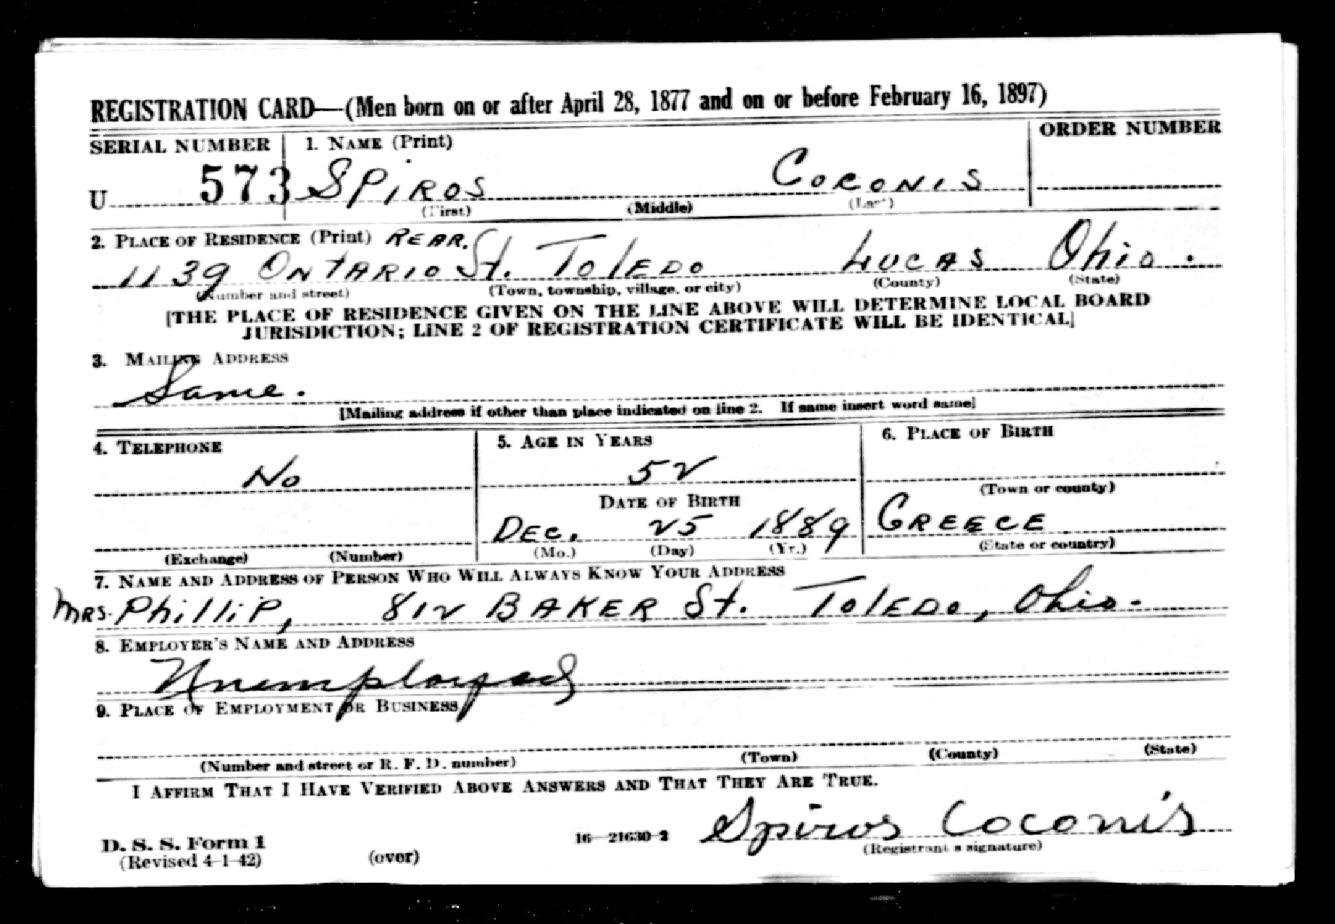 REGISTRATION CARD—(Men born on or after April 28, 1877 and on or before February 16, 1897)
SERIAL NUMBER 1. NAME (Print) ORDER NUMBER
U 573 SPIROS COCONIS
(First) (Middle) (Last)
2. PLACE OF RESIDENCE (Print) REAR.
1139 ONTARIO St. TOLEDO LUCAS Ohio.
(Number and street) (Town, township, village, or city) (County) (State)
[THE PLACE OF RESIDENCE GIVEN ON THE LINE ABOVE WILL DETERMINE LOCAL BOARD
JURISDICTION; LINE 2 OF REGISTRATION CERTIFICATE WILL BE IDENTICAL]
3. MAILING ADDRESS
Same.
[Mailing address if other than place indicated on line 2. If same insert word same]
4. TELEPHONE 5. AGE IN YEARS 6. PLACE OF BIRTH
No 52
(Town or county)
DATE OF BIRTH
DEC. 25 1889 GREECE
(Exchange) (Number) (Mo.) (Day) (Yr.) (State or country)
7. NAME AND ADDRESS OF PERSON WHO WILL ALWAYS KNOW YOUR ADDRESS
MRS. PhilliP, 812 BAKER St. TOlEDO, Ohio.
8. EMPLOYER'S NAME AND ADDRESS
Unemployed
9. PLACE OF EMPLOYMENT OR BUSINESS
(Number and street or R. F. D. number) (Town) (County) (State)
I AFFIRM THAT I HAVE VERIFIED ABOVE ANSWERS AND THAT THEY ARE TRUE.
D. S. S. Form 1 16—21630-2 Spiros Coconis
(Revised 4-1-42) (over) (Registrant's signature)